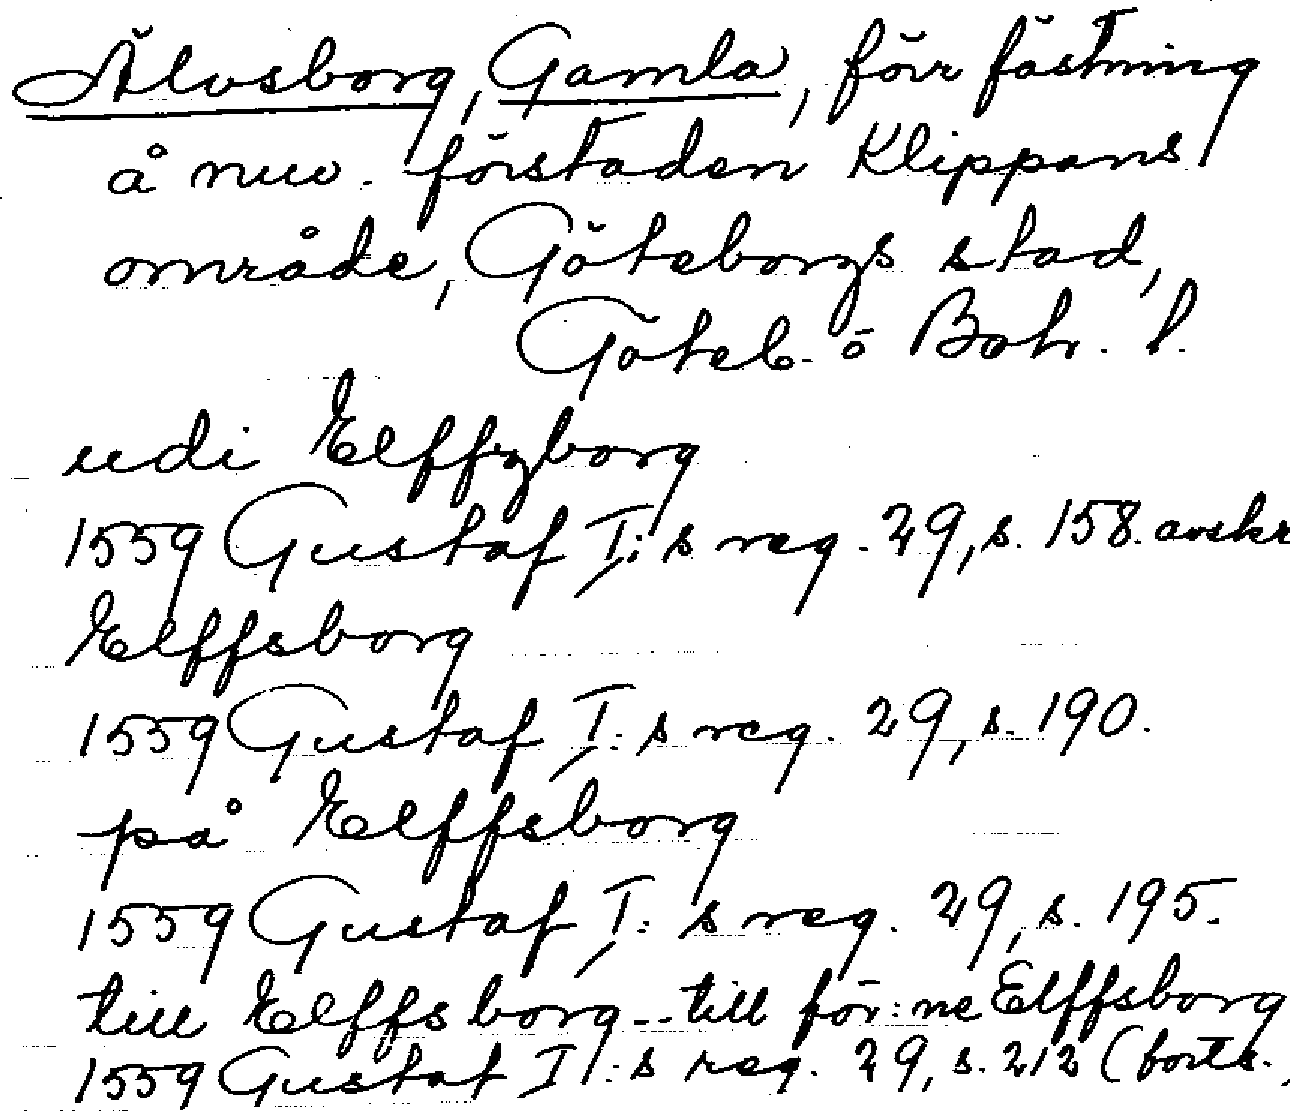 Älvsborg, Gamla, förr fästning
å nuv. förstaden Klippans
område, Göteborgs stad,
Göteb. o Boh. l.
udi Elffzborg
1559 Gustaf I:s reg. 29, s. 158. avskr
Elffsborg
1559 Gustaf I:s reg. 29, s. 190.
på Elffsborg
1559 Gustaf I:s reg. 29, s. 195.
till Elffsborg -- till för:ne Elffsborg
1559 Gustaf I:s reg. 29, s. 212 (forts.